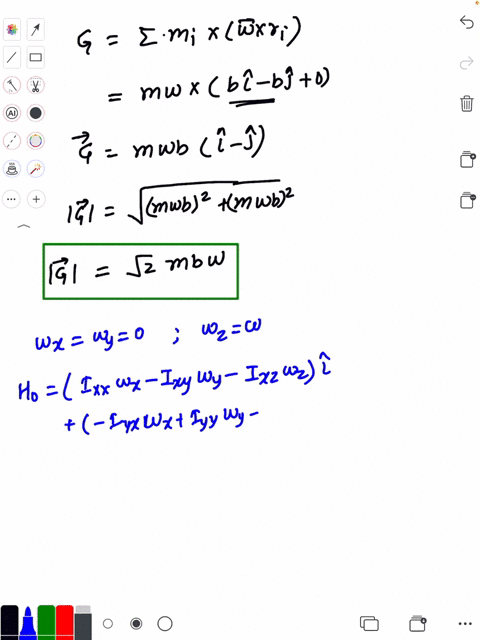 G = Σ·mᵢ × (ω̅×rᵢ)
= mω × (bî−bĵ+0)
G⃗ = mωb (î−ĵ)
|G⃗| = √(mωb)² + (mωb)²
|G⃗| = √2 mbω
ωx = ωy = 0 ; ωz = ω
H₀ = (Ixx ωx − Ixy ωy − Ixz ωz) î
+ (−Iyx ωx + Iyy ωy −